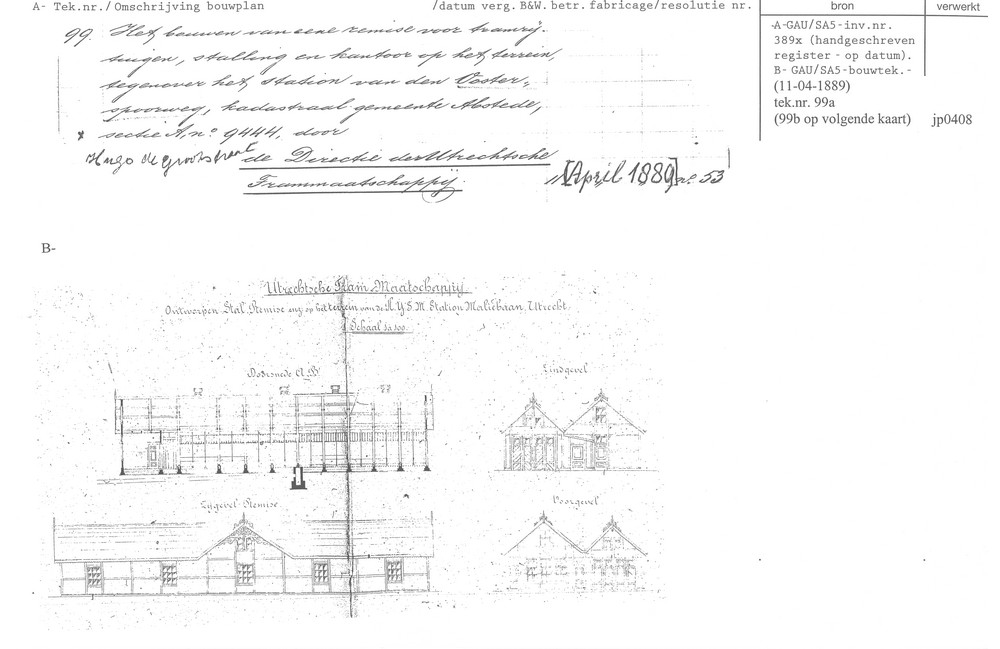 A- Tek.nr./Omschrijving bouwplan /datum verg. B&W.betr.fabricage/resolutie nr.
bron
verwerkt
99. Het bouwen van eene remise voor tramrij-
tuigen, stalling en kantoor op het terrein,
tegenover het station van den Ooster-
spoorweg, kadastraal gemeente Abstede,
x sectie A, no. 9444, door
Hugo de grootstraat
de Directie der Utrechtsche
Trammaatschappij.
[April 1889] no. 53
-A-GAU/SA5-inv.nr.
389x (handgeschreven
register - op datum).
B- GAU/SA5-bouwtek.-
(11-04-1889)
tek.nr. 99a
(99b op volgende kaart)
jp0408
B-
Utrechtsche Tram Maatschappij
Ontwerpen Stal, Remise enz op het terrein van de H.Y.S.M. Station Maliebaan, Utrecht.
Schaal 1 à 100.
Doorsnede A.B.
Eindgevel
Zijgevel Remise
Voorgevel